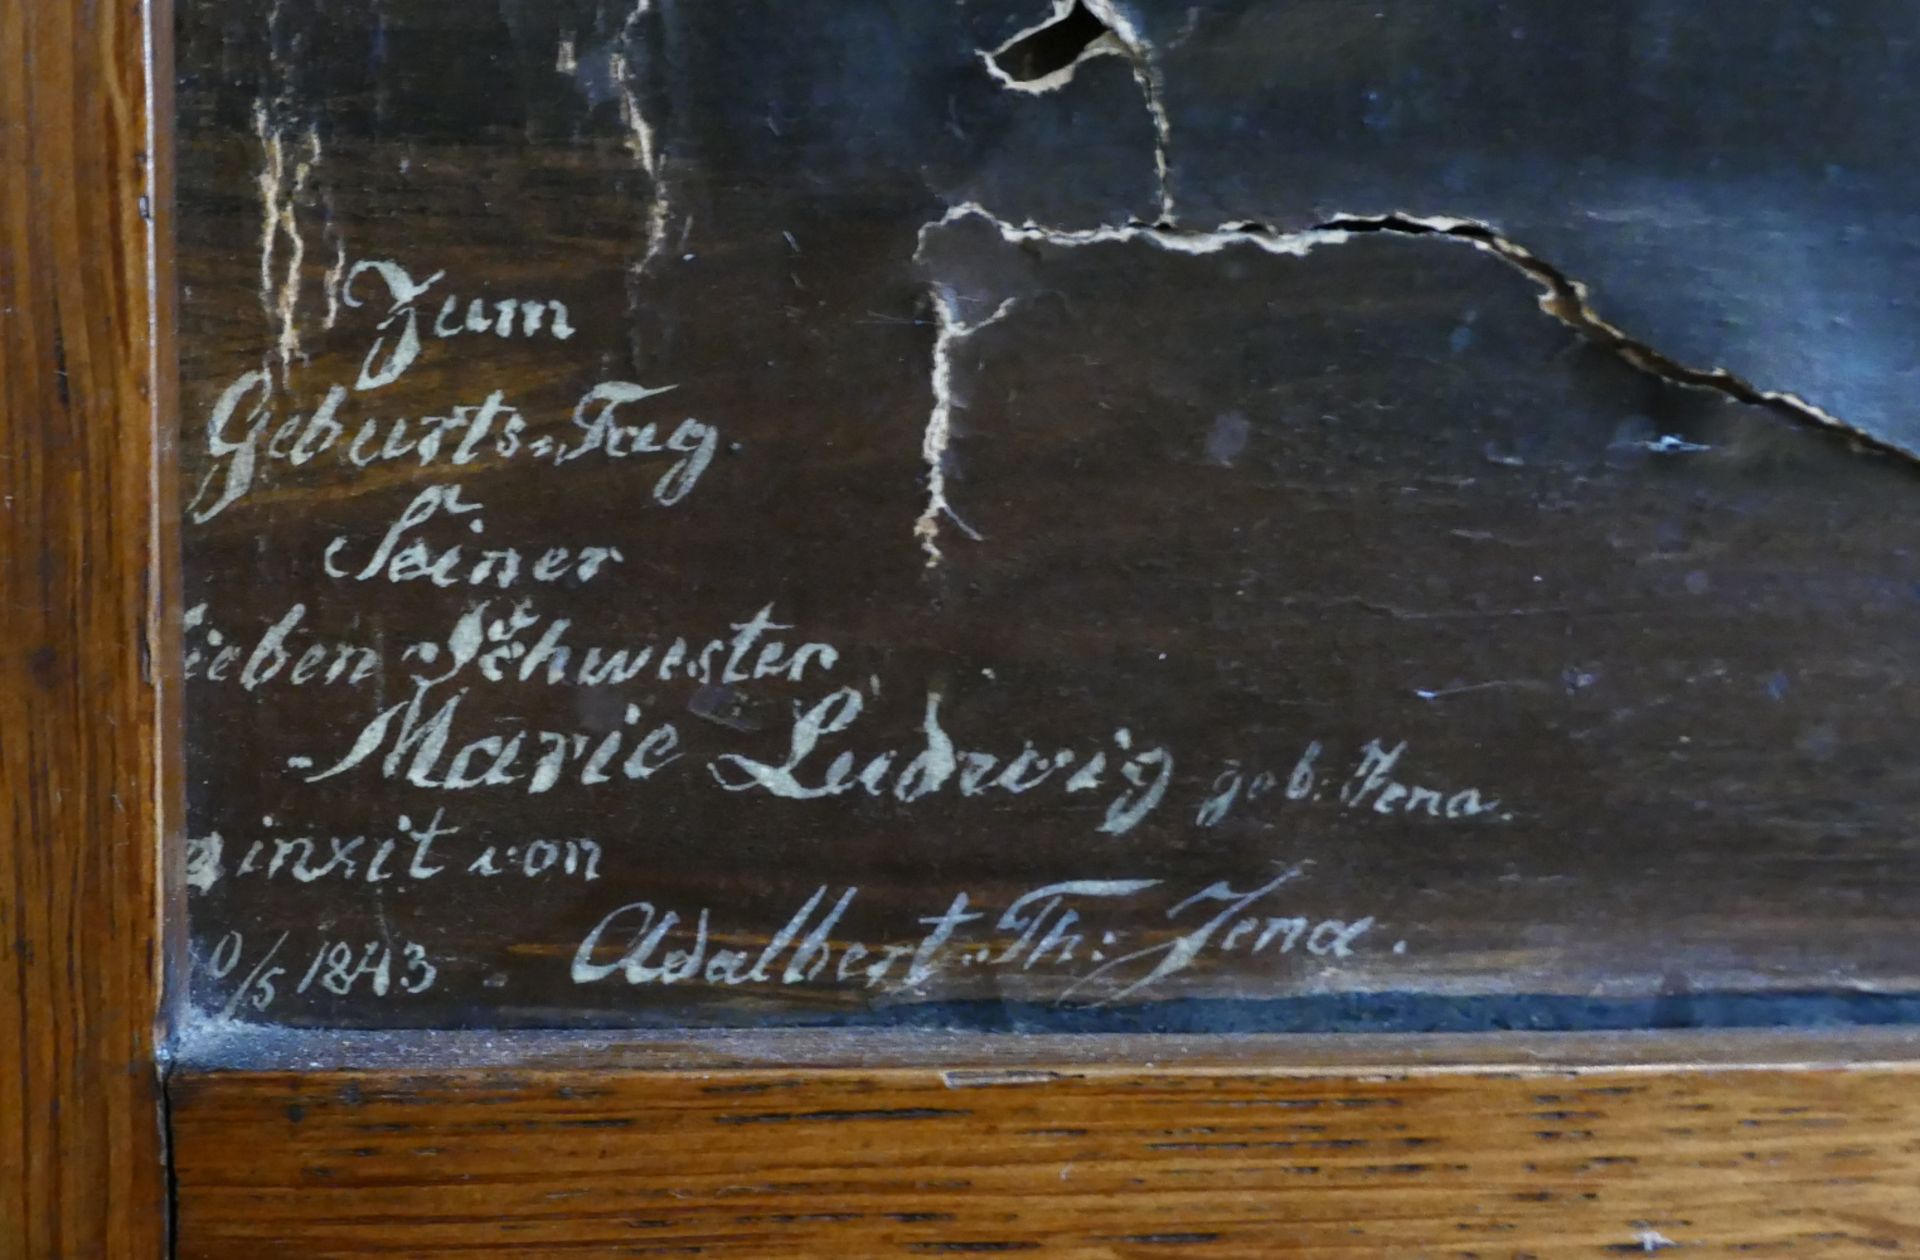 Zum
Geburts=Tag.
Seiner
lieben Schwester
Marie Ludwig geb: Jena.
pinxit von
Adalbert.Th: Jena.
0/5 1843